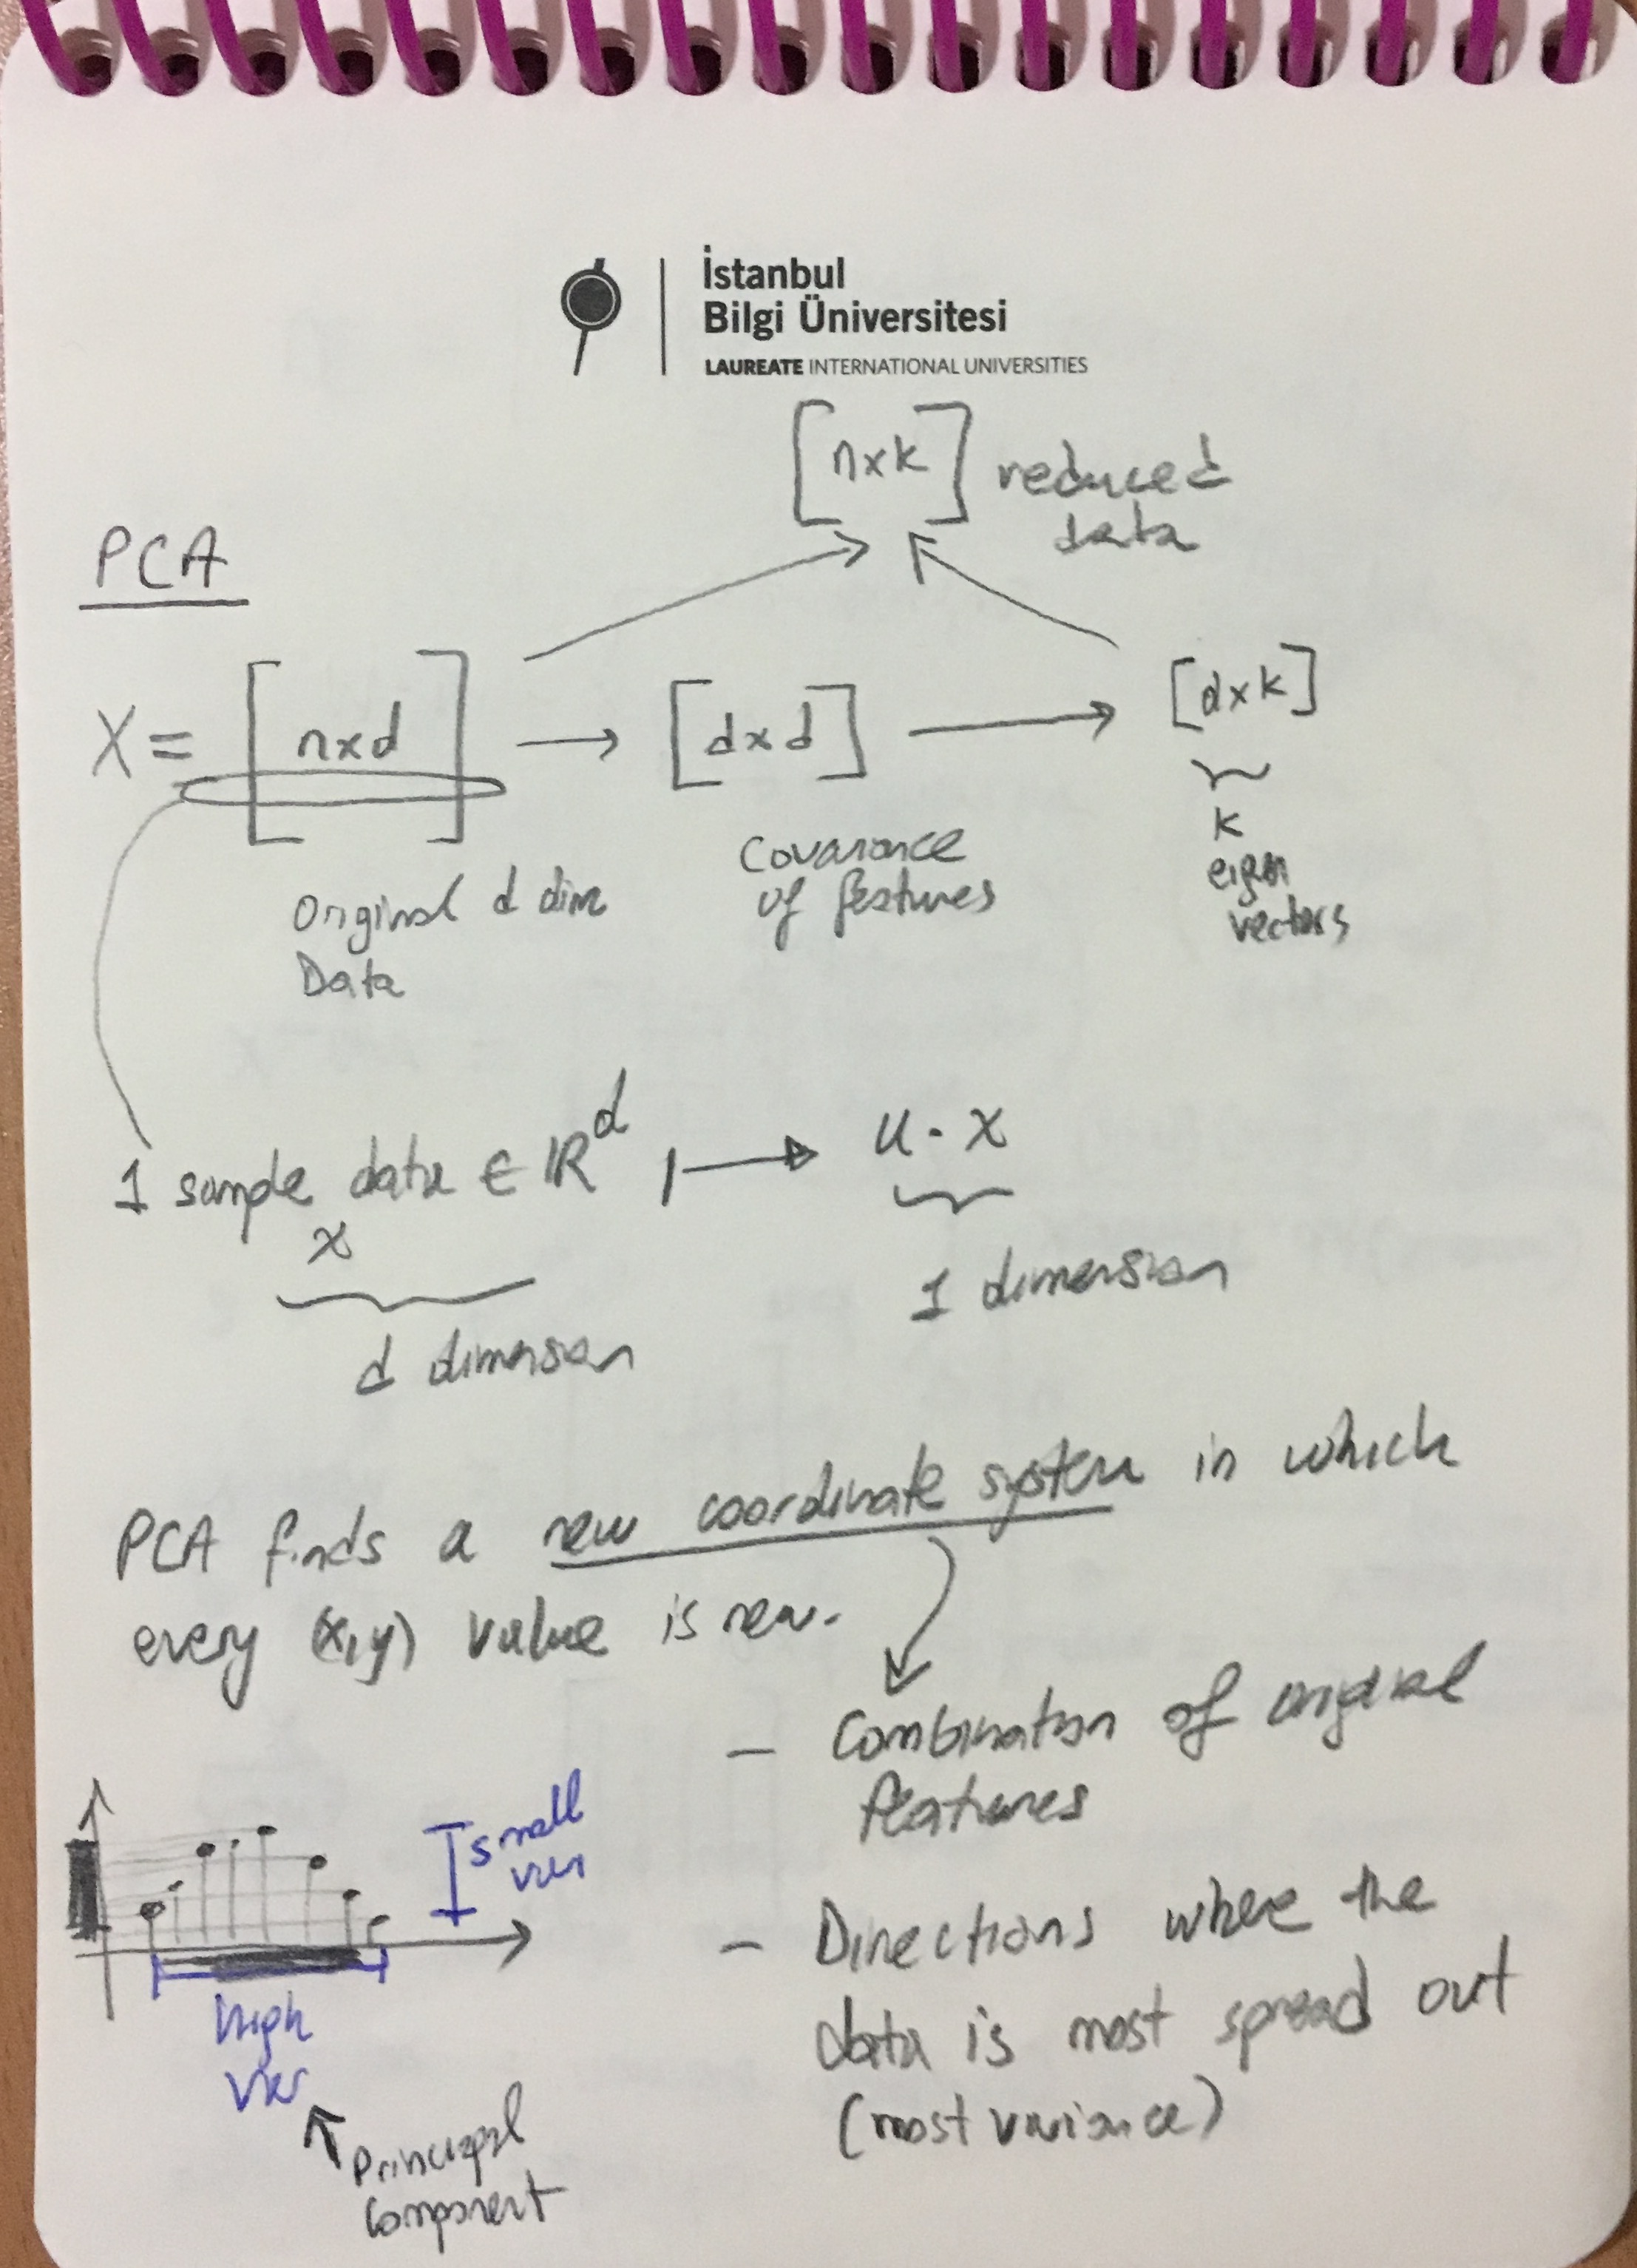 İstanbul
Bilgi Üniversitesi
LAUREATE INTERNATIONAL UNIVERSITIES
[n x k] reduced
data
PCA
X = [n x d] → [d x d] → [d x k]
Original d dim
Data
Covariance
of features
k
eigen
vectors
1 sample data ∈ ℝ^d ↦ u · x
x
1 dimension
d dimension
PCA finds a new coordinate system in which
every (x,y) value is new.
- Combination of original
features
small
var
- Directions where the
data is most spread out
(most variance)
high
var
Principal
Component